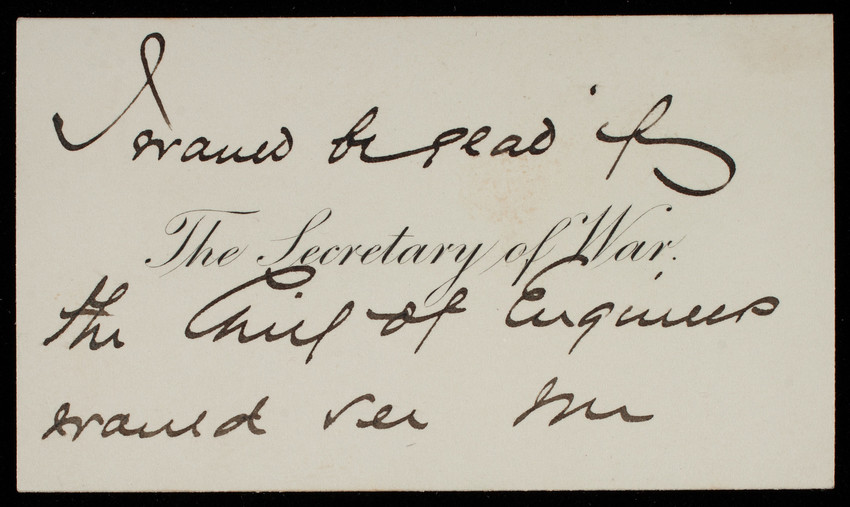 I
would be glad if
The Secretary of War.
the Chief of Engineers
would see me